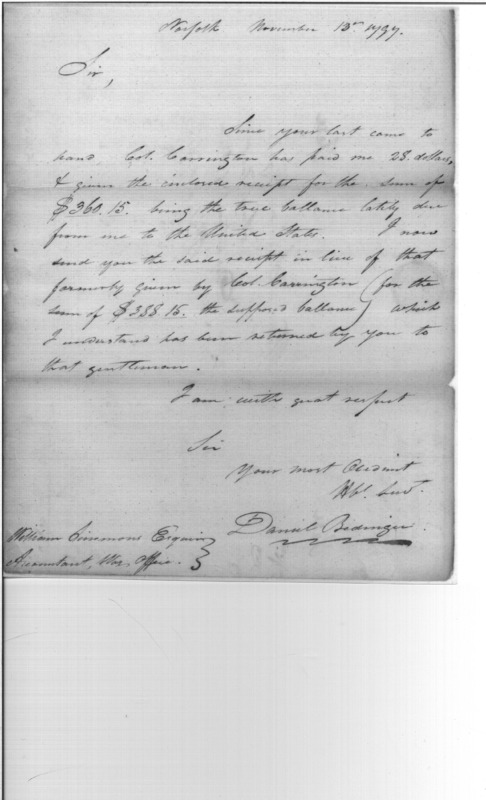 Norfolk November 13th 1797.
Sir,
Since your last came to
hand Col. Carrington has paid me 28. dollars,
& given the inclosed receipt for the sum of
$360.15. being the true ballance lately due
from me to the United States. I now
send you the said receipt in lieu of that
formerly given by Col. Carrington (for the
sum of $388.15. the supposed ballance) which
I understand has been returned by you to
that gentleman.
I am with great respect
Sir
Your most Obedient
Hbl. Servt.
Daniel Bedinger.
William Simmons Esquire
Accountant, War Office.